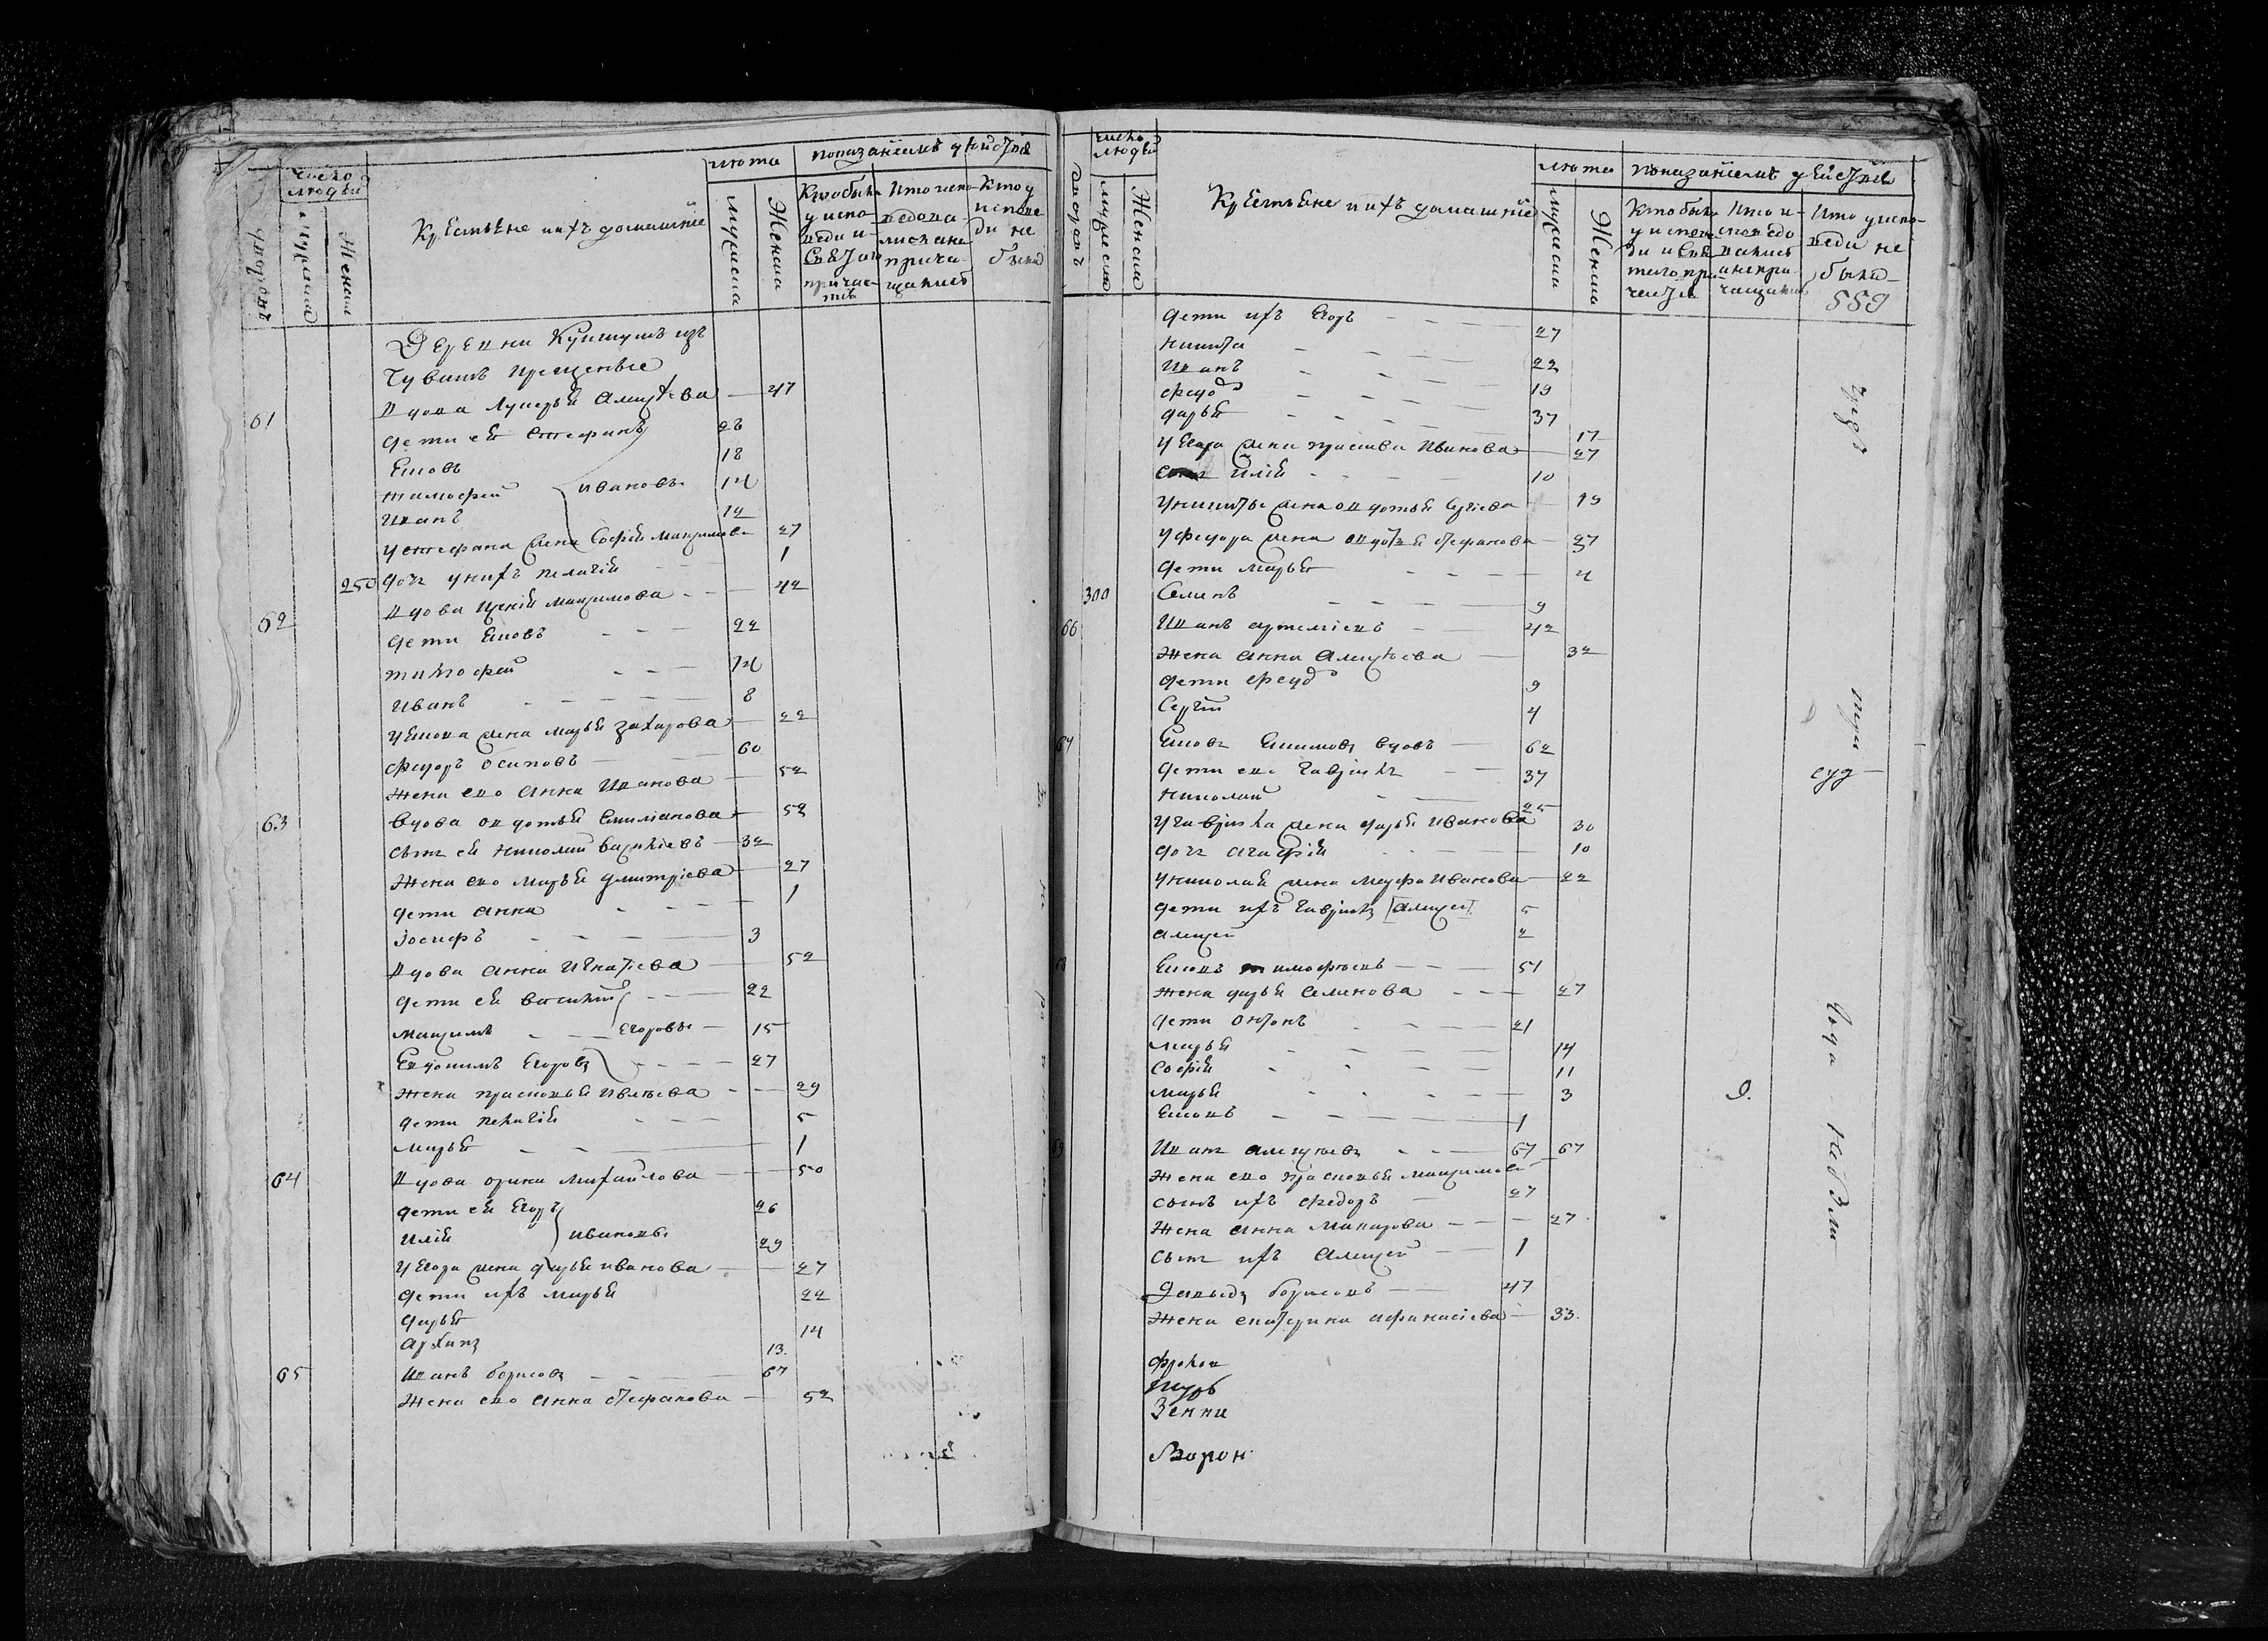 число людей
дворовъ
мужеска
Женска
Крестьяне и ихъ домашніе
лѣта
мужеска
Женска
показаніемъ действа
Кто были у исповеди и святаго причастія
Кто исповедовались а не причащались
Кто у исповеди не былъ
Деревни
Чувашъ крещеные
61 вдова Лукерья Алексѣева — 47
дети ея Стефанъ 28
Емовъ 18
тимофей ивановы 14
иванъ 12
у стефана жена Софія максимова 27
250 дочь у нихъ пелагія 1
62 вдова Ксенія максимова 42
дети Емовъ 22
тимофей 14
иванъ 8
у Емова жена марья захарова 22
федоръ осиповъ 60
жена ево Анна иванова 52
63 вдова овдотья Емилианова 52
сынъ ея николай василіевъ 32
жена ево марья дмитріева 27
дети анна 1
Іосифъ 3
вдова анна игнатіева 52
дети ея василий 22
максимъ Егоровы 15
Евдокимъ Егоровъ 27
жена прасковья 29
дети пелагія 5
марья 1
64 вдова орина михайлова 50
дети ея Егоръ 26
илія ивановы 29
у Егора жена дарья иванова 27
дети ихъ марья 22
дарья 14
архипъ 13.
65 иванъ борисовъ 67
жена ево анна стефанова 52
число людей
дворовъ
мужеска
Женска
Крестьяне и ихъ домашніе
лѣта
мужеска
Женска
показаніемъ действа
Кто были у исповеди и святаго причастія
Кто исповедовались а не причащались
Кто у исповеди не были
559
дети ихъ Егоръ 27
никита 22
иванъ 19
федоръ 37
дарья 17
у Егора жена прасковья иванова 27
илія 10
у никиты жена овдотья Сергіева 19
у федора жена овдотья стефанова 27
дети марья 4
300 Семенъ 9
66 иванъ артеміевъ 42
жена анна алексѣева 32
дети федоръ 9
Сергій 4
67 Емовъ вдовъ 62
дети ево гаврилъ 37
николай 25
у гаврила жена дарья иванова 30
дочь агафія 10
у николая жена марфа иванова 22
дети ихъ гаврилъ [алексей] 5
алексей 2
68 Емовъ тимофѣевъ 51
жена дарья Семенова 27
дети онтонъ 21
марья 14
софія 11
марья 3
Емовъ 1
69 иванъ алексѣевъ 67 67
жена ево прасковья максимова
сынъ ихъ федоръ 27
жена анна макарова 27
сынъ ихъ алексей 1
давыдъ борисовъ 47
жена екатерина афанасіева 33.
9.
суд